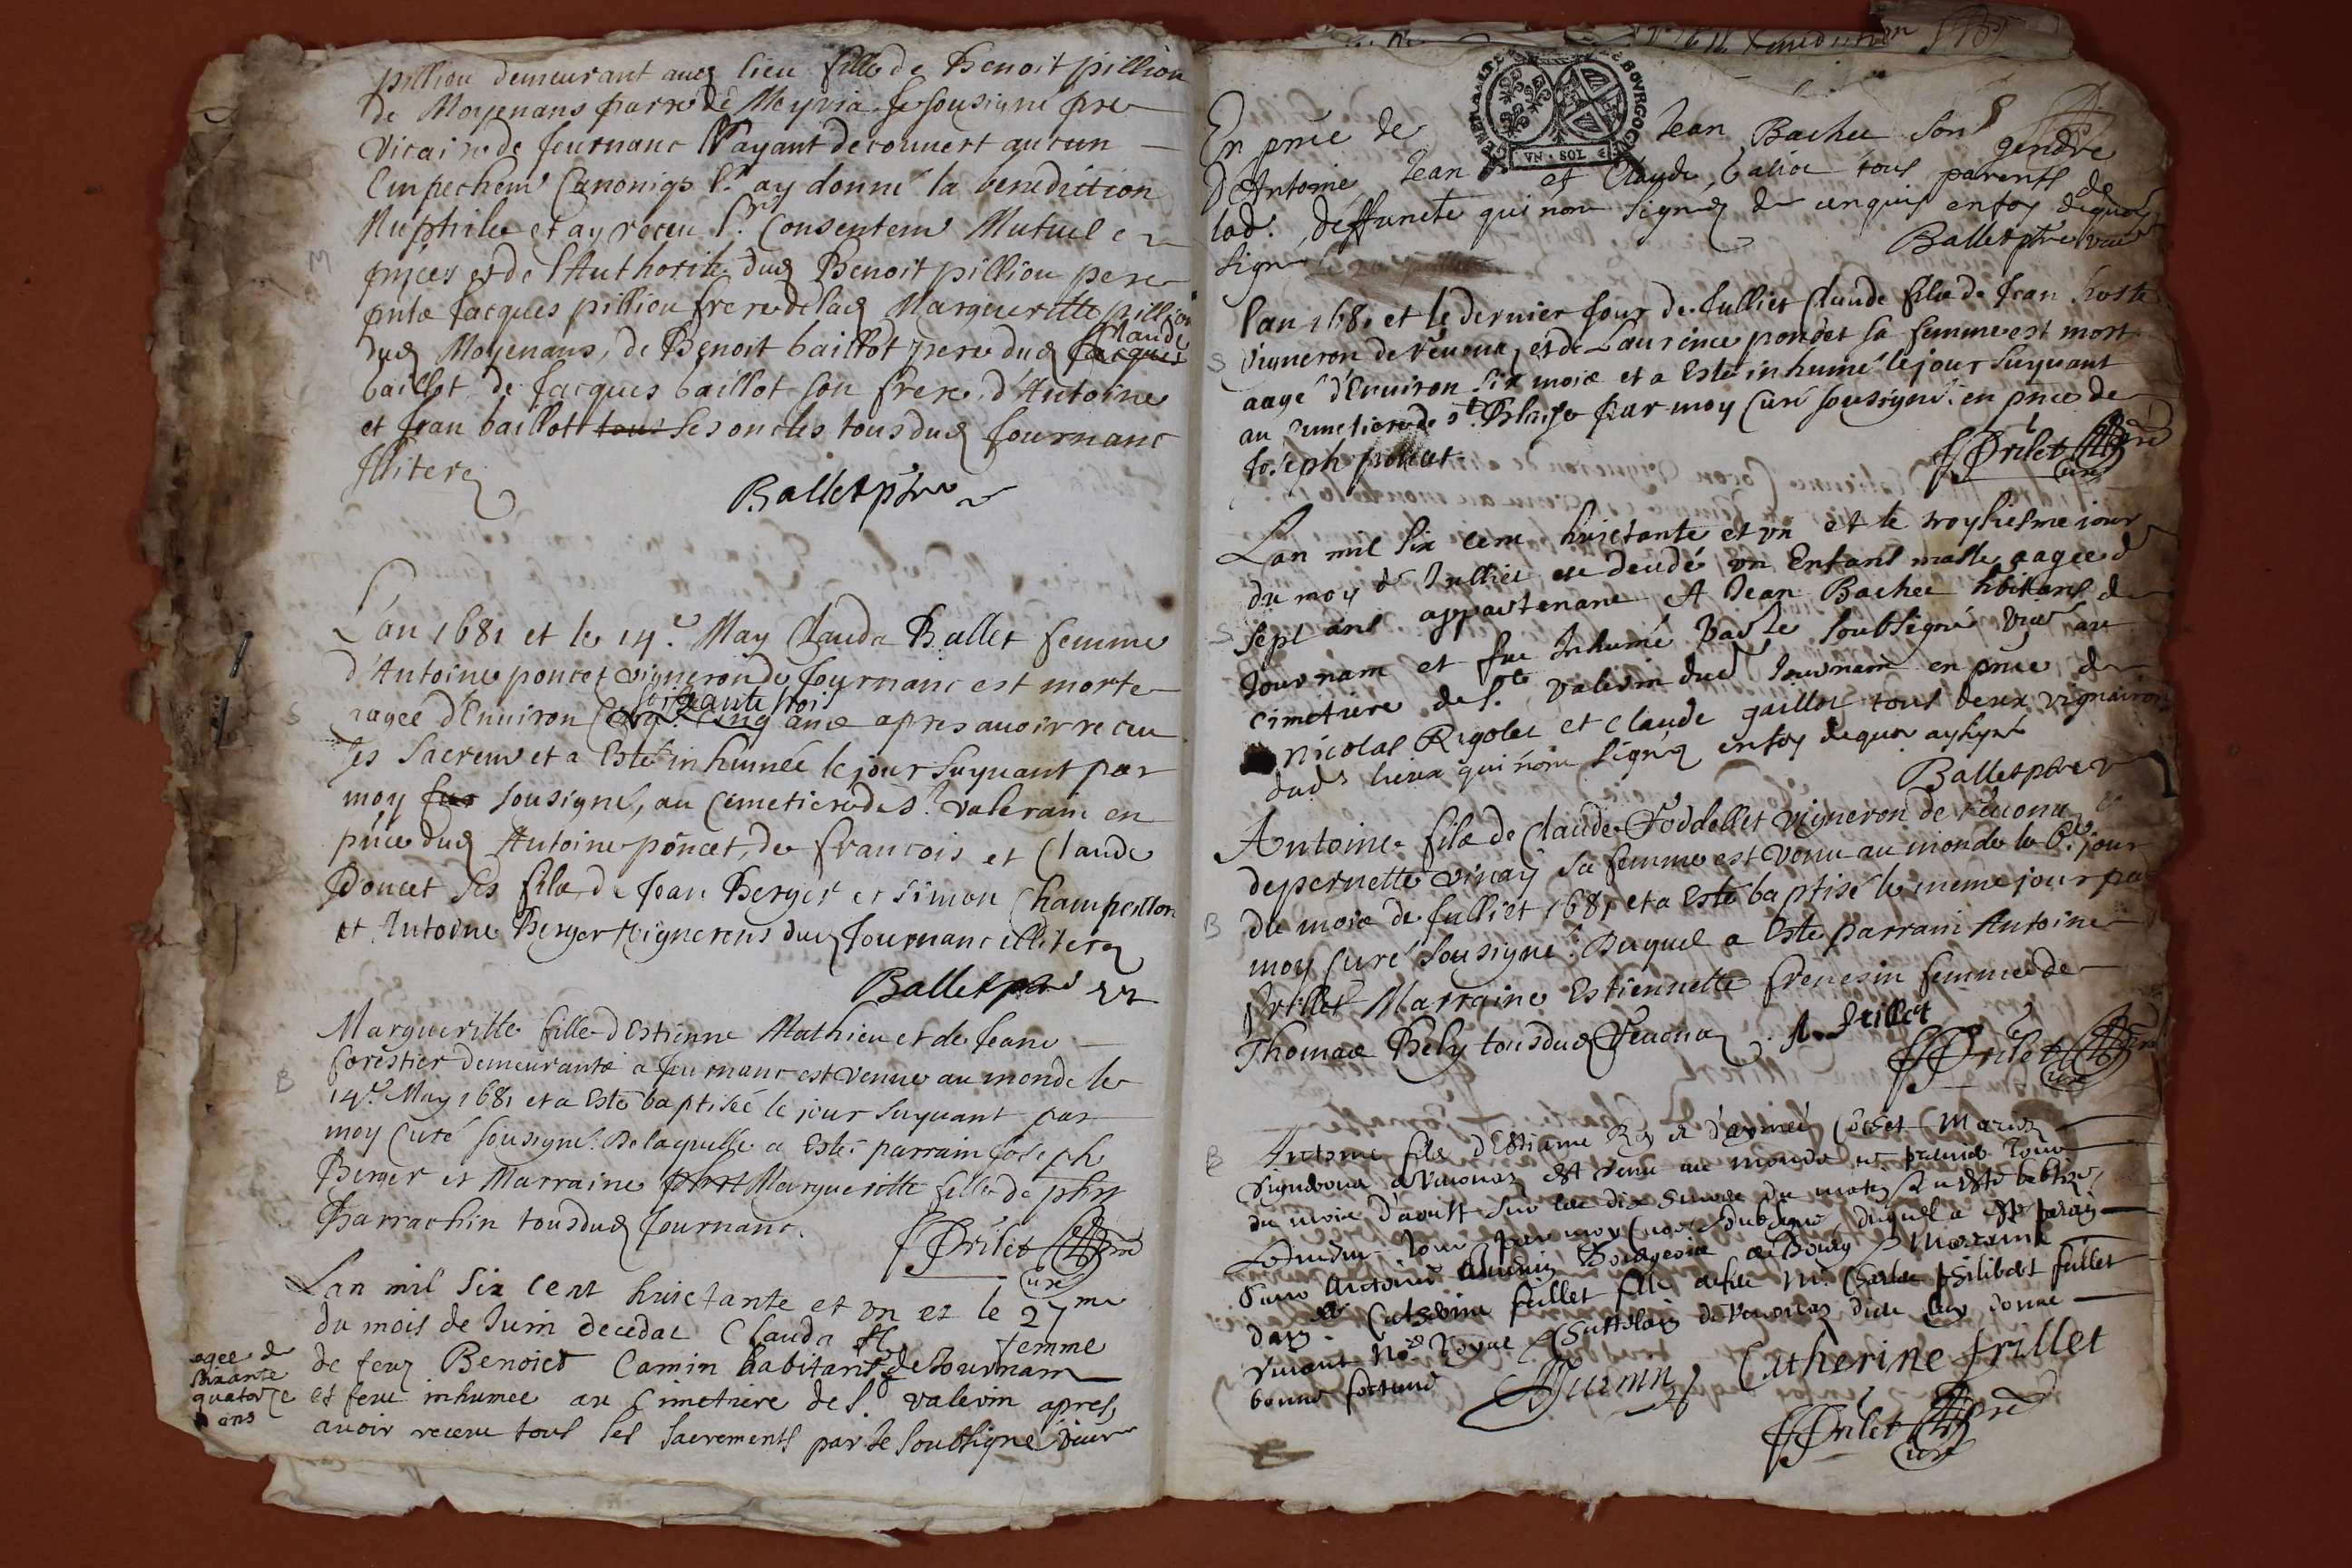 pillion demeurant aud lieu fille de Benoit pillion
de Moyenans parre de Meyria Je sousigné pre
vicaire de Journanc N'ayant decouvert aucun
Empechem Canoniqs l. ay donné la benediction
Nuptiale et ay receu l. Consentem Mutuel en
pnces et de l'Authorité dud Benoit pillion pere
Jacques pillion frere de lad Marguerite pillion
dud Moyenans, de Benoit baillot pere dud Jacques Claude
baillot de Jacques baillot son frere d'Antoine
et Jean baillot tous ses oncles tous dud Journanc
Illiterez
Ballet ptre
L'an 1681 et le 14.e May Clauda Ballet femme
d'Antoine poncet vigneron de Journanc est morte
aagée d'Environ Cinq soixante trois ans apres avoir receu
les Sacrem et a Esté inhumée le jour suyvant par
moy sousigné, au Cimetiere de S.t Valerain en
pnce dud Antoine poncet, de francois et Claude
Poncet ses fils, de Jean Berger et Simon Champeillon
et Antoine Berger Vignerons dud Journanc illiterez
Ballet ptre
M
S
B
Margueritte fille d'Estienne Mathieu et de Jeane
forestier demeurants a Journanc est venue au monde le
14.e May 1681 et a Esté baptisée le jour suyvant par
moy Curé sousigné. De laquelle a Esté parrain Joseph
Berger et Marraine phrt Marguerite fille de phrt
Barrachin tous dud Journanc.
f Drilet pre
Curé
Lan mil six cent huictante et un et le 27me
du mois de Juin deceda Clauda femme
de feuz Benoict Camin habitans de Journam
agee de
soixante
quatorze
ans
et feut inhumee au Cimetiere de S.t valerin apres
avoir receu tous les sacrements par le soubsigné vicr
GENERALITE DE BOVRGOGNE
VN SOL
En pnce de Jean Bachee son gendre
D'Antoine Jean et Claude baliot tous parents de
lad. deffuncte qui nont signé de enquis en foy dequoy
signé
Ballet ptre vicr
l'an 1681 et le dernier Jour de Julliet Claude fils de Jean
Vigneron de Revona, et de Laurence poncet sa femme est mort
aagé d'Environ six mois et a Esté inhumé le jour suyvant
au Cimetiere de St. Blaise par moy Curé sousigné. en pnce de
Joseph
f Drilet pre
Curé
S
Lan mil six cent huictante et un et le troysiesme iour
du moy de Julliet est decedé un Enfant masle aagee de
sept ans appartenant A Jean Bachee hbitant de
Journam et fut Inhumé par le soubsigné vicr au
cimetiere de S.t valerin dud Journam en pnce de
nicolas Rigolet et Claude gaillot tous deux vignairons
dud lieux qui n'ont signéz en foy dequoi ay signé
Ballet ptre v
S
Antoine fils de Claude Foddellet Vigneron de Revona
de pernette vinay sa femme est venu au monde le 6.e jour
du mois de Julliet 1681 et a Esté baptisé le meme jour par
moy Curé sousigné. Duquel a Esté parrain Antoine
frillet Marraine Estiennette frenesin femme de
Thomas Bely tous dud Revona.
A. frillet
f Drilet pre
Curé
B
B
Antoine fils d'Estiame Rey et d'aymée Cocset Mariez
Vignerons a Revonas est venu au monde le premier Jour
du mois d'aoust sur les dix du matin et a esté baptisé
par moy Curé soubsigné, duquel a esté parain
sieur Antoine Bourgeois de Bourg et Marraine
Catherine frillet fille de feu Mr. Charles philibert frillet
vivant No.re Royal Chastelain de Revonas
bonne fortune
Catherine frillet
f Drilet pre
Curé